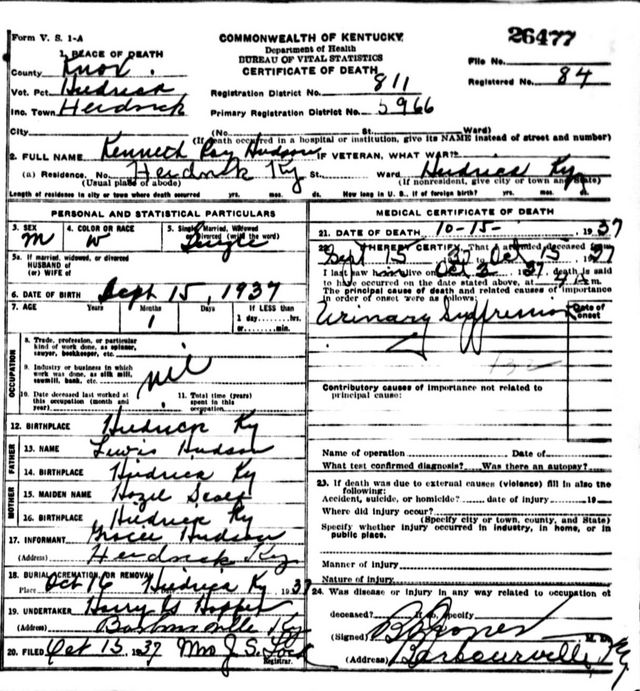 Form V. S. 1-A
COMMONWEALTH OF KENTUCKY
Department of Health
BUREAU OF VITAL STATISTICS
CERTIFICATE OF DEATH
26477
File No.
Registered No. 84
1. PLACE OF DEATH
County Knox.
Vot. Pct. Heidrick
Inc. Town Heidrick
Registration District No. 811
Primary Registration District No. 5966
City (No. St. Ward)
(If death occurred in a hospital or institution, give its NAME instead of street and number)
2. FULL NAME Kenneth Ray Hudson IF VETERAN, WHAT WAR?
(a) Residence. No. Heidrick Ky St. Ward Heidrick Ky
(Usual place of abode) (If nonresident, give city or town and State)
Length of residence in city or town where death occurred yrs. mos. ds. How long in U. S., if of foreign birth? yrs. mos. ds.
PERSONAL AND STATISTICAL PARTICULARS
3. SEX M
4. COLOR OR RACE W
5. Single, Married, Widowed
Divorced (write the word) Single
5a. If married, widowed, or divorced
HUSBAND of
(or) WIFE of
6. DATE OF BIRTH Sept 15, 1937
7. AGE Years Months 1 Days If LESS than
1 day,......hrs.
or......min.
OCCUPATION
8. Trade, profession, or particular
kind of work done, as spinner,
sawyer, bookkeeper, etc.
9. Industry or business in which
work was done, as silk mill,
sawmill, bank, etc.
nil
10. Date deceased last worked at
this occupation (month and
year)
11. Total time (years)
spent in this
occupation
12. BIRTHPLACE Heidrick Ky
FATHER
13. NAME Lewis Hudson
14. BIRTHPLACE Heidrick Ky
MOTHER
15. MAIDEN NAME Hazel
16. BIRTHPLACE Heidrick Ky
17. INFORMANT Hudson
(Address) Heidrick Ky
18. BURIAL, CREMATION, OR REMOVAL
Place Oct 16 Heidrick Ky 1937
19. UNDERTAKER Harry Hopper
(Address) Barbourville Ky
20. FILED Oct 15, 1937 Mrs J. S.
Registrar.
MEDICAL CERTIFICATE OF DEATH
21. DATE OF DEATH 10-15- , 1937
22. I HEREBY CERTIFY, That I attended deceased from
Sept 15 37 to Oct 15 1937
I last saw him alive on Oct 2 1937, death is said
to have occurred on the date stated above, at m.
The principal cause of death and related causes of importance
in order of onset were as follows:
Date of
onset
Urinary Suppression
Contributory causes of importance not related to
principal cause:
Name of operation Date of
What test confirmed diagnosis? Was there an autopsy?
23. If death was due to external causes (violence) fill in also the
following:
Accident, suicide, or homicide? date of injury 19
Where did injury occur?
(Specify city or town, county, and State)
Specify whether injury occurred in industry, in home, or in
public place.
Manner of injury
Nature of injury
24. Was disease or injury in any way related to occupation of
deceased? If so, specify
(Signed) Jones M. D.
(Address) Barbourville Ky